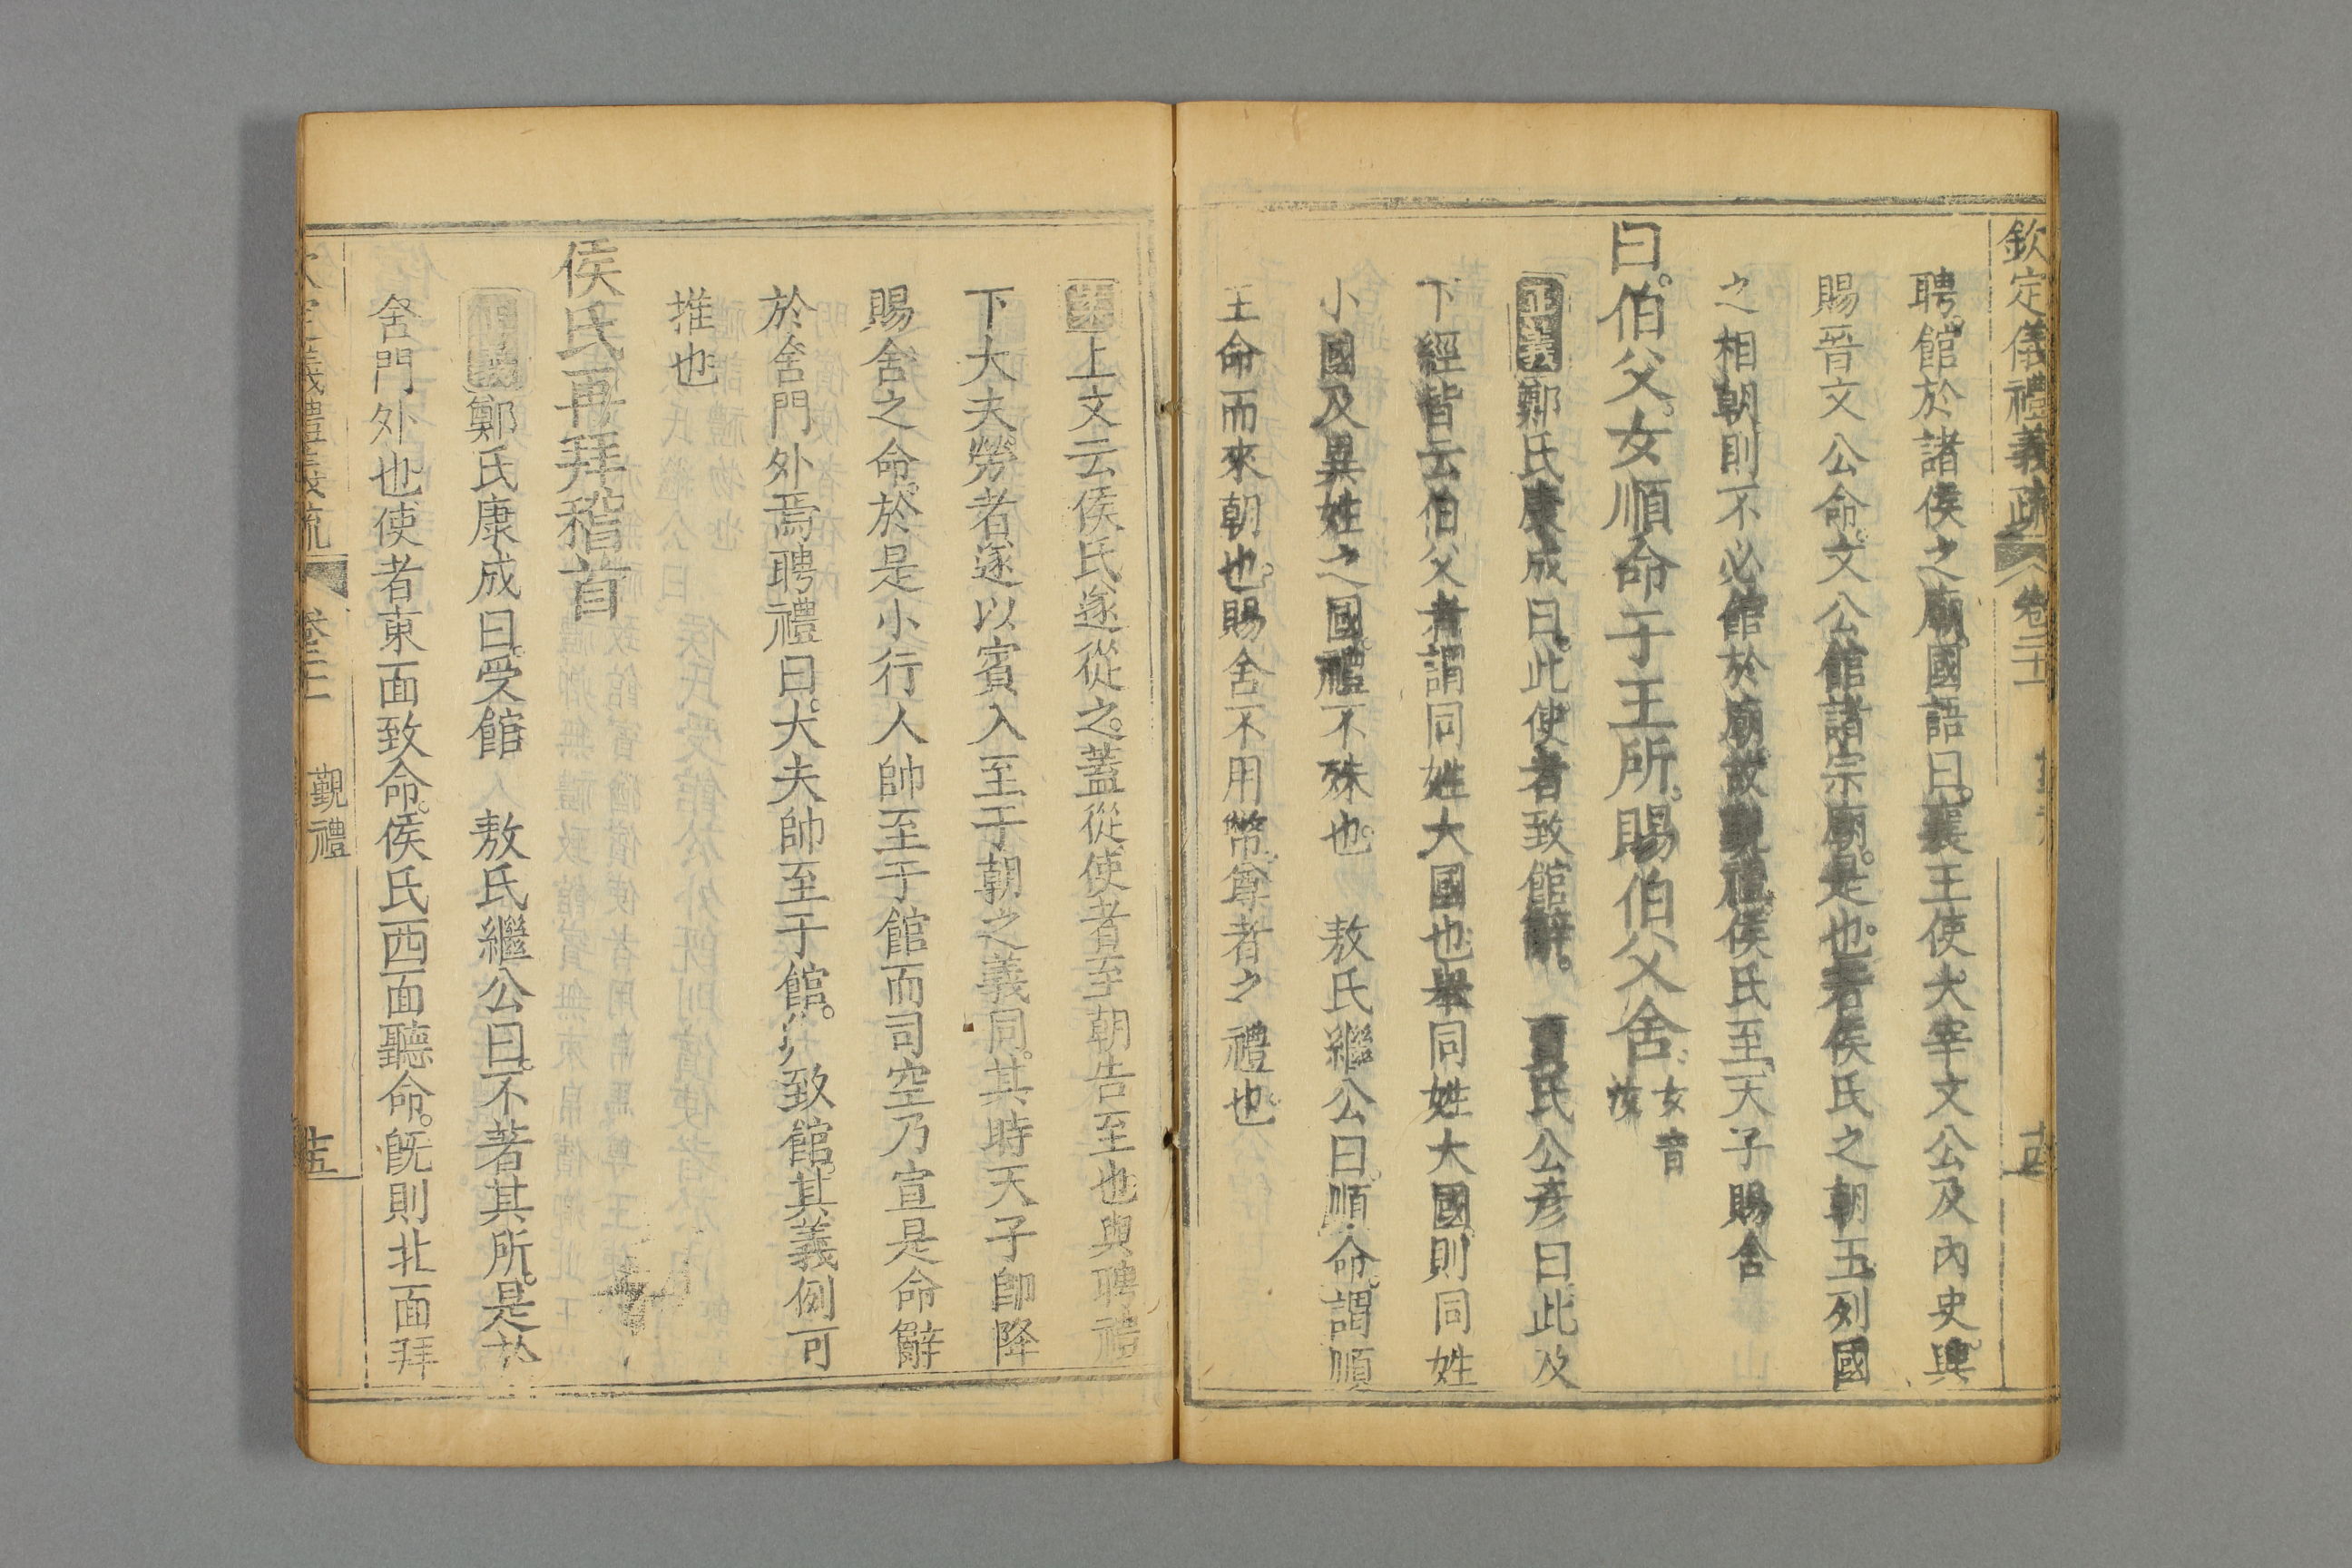 欽定儀禮義疏 卷二十
聘館於諸侯之廟國語曰襄王使大宰文公及內史興
賜晉文公命文公館諸宗廟是也若侯氏之朝王列國
之相朝則不必館於廟故覲禮侯氏至天子賜舍
曰伯父女順命于王所賜伯父舍女音汝
正義鄭氏康成曰此使者致館辭 賈氏公彥曰此及
下經皆云伯父者謂同姓大國也舉同姓大國則同姓
小國及異姓之國禮不殊也 敖氏繼公曰順命謂順
王命而來朝也賜舍不用幣尊者之禮也
案上文云侯氏遂從之蓋從使者至朝告至也與聘禮
下大夫勞者遂以賓入至于朝之義同其時天子即降
賜舍之命於是小行人帥至于館而司空乃宣是命辭
於舍門外焉聘禮曰大夫帥至于館致館其義例可
推也
侯氏再拜稽首
正義鄭氏康成曰受館 敖氏繼公曰不著其所是於
舍門外也使者東面致命侯氏西面聽命旣則北面拜
覲禮